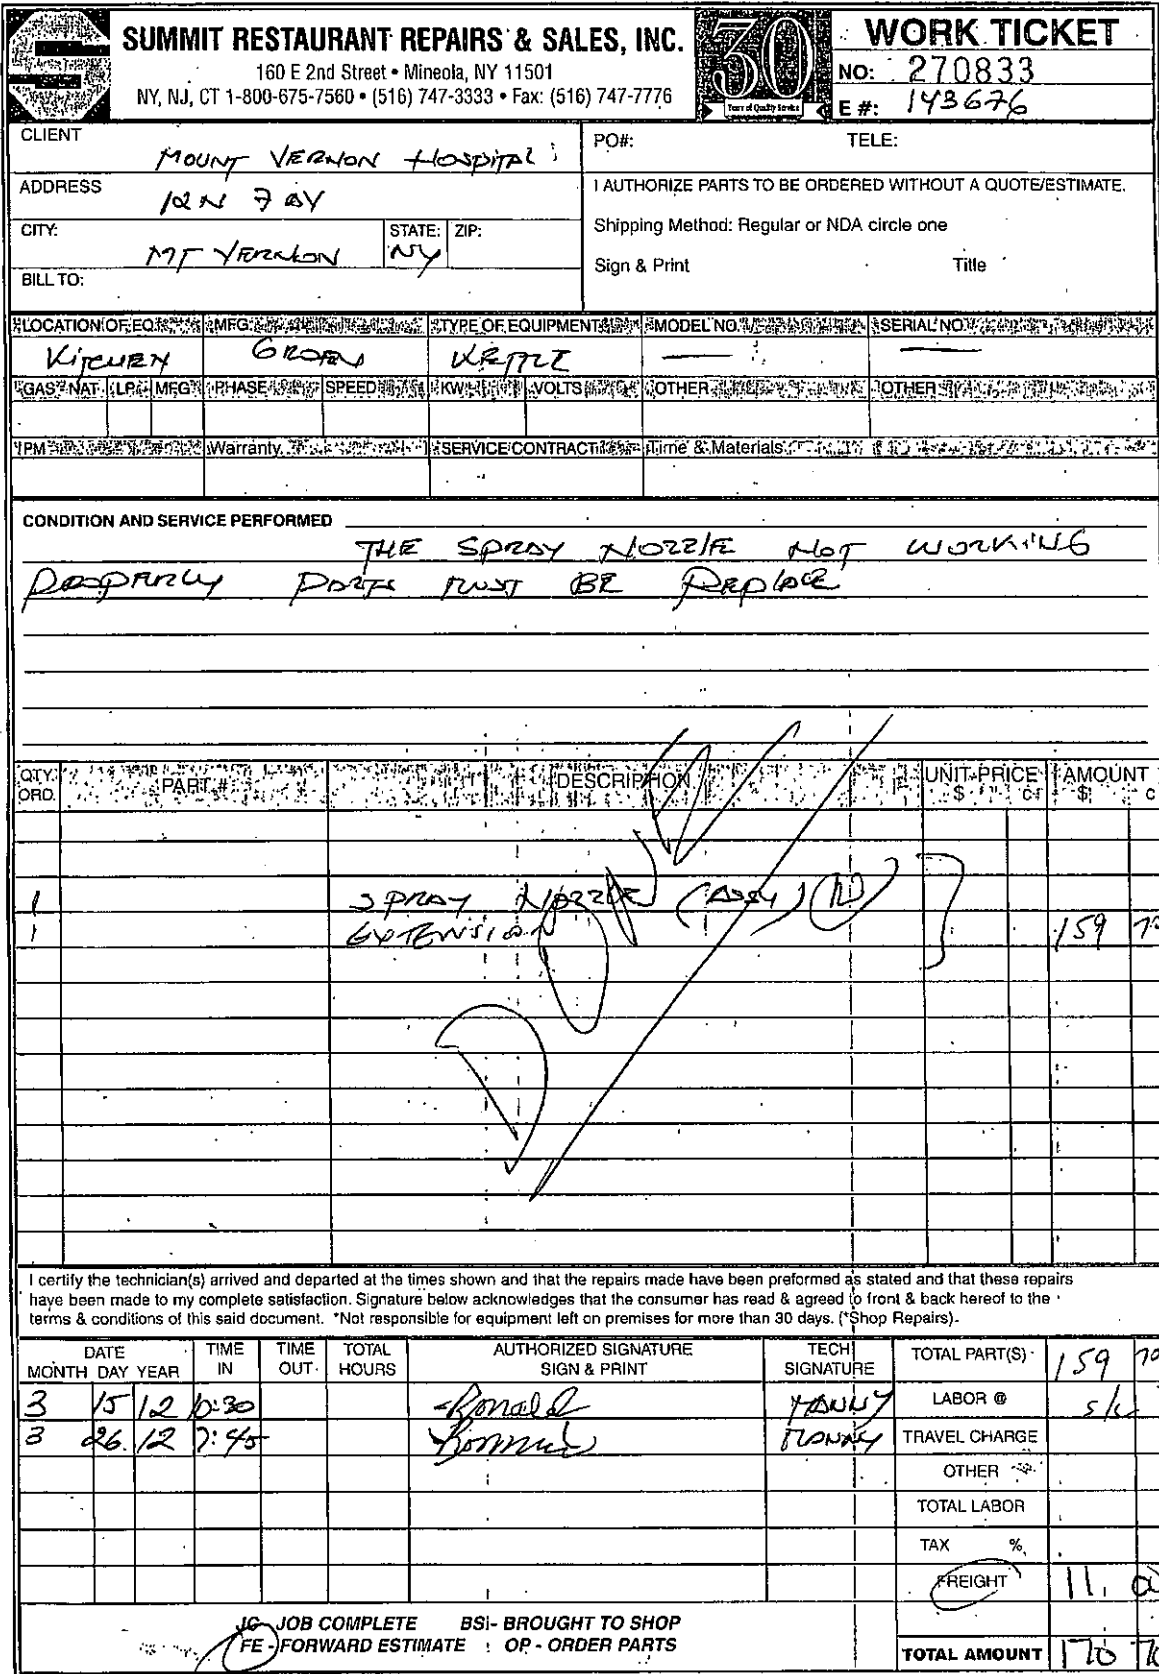 SUMMIT RESTAURANT REPAIRS & SALES, INC.
160 E 2nd Street • Mineola, NY 11501
NY, NJ, CT 1-800-675-7560 • (516) 747-3333 • Fax: (516) 747-7776
30
Years of Quality Service
WORK TICKET
NO: 270833
E #: 143676
CLIENT MOUNT VERNON HOSPITAL
ADDRESS 12 N 7 AV
CITY: MT VERNON STATE: NY ZIP:
BILL TO:
PO#: TELE:
I AUTHORIZE PARTS TO BE ORDERED WITHOUT A QUOTE/ESTIMATE.
Shipping Method: Regular or NDA circle one
Sign & Print Title
LOCATION OF EQ. MFG. TYPE OF EQUIPMENT MODEL NO. SERIAL NO.
KITCHEN GROEN KETTLE — —
GAS NAT LP MFG PHASE SPEED KW VOLTS OTHER OTHER
PM Warranty SERVICE CONTRACT Time & Materials
CONDITION AND SERVICE PERFORMED
THE SPRAY NOZZLE NOT WORKING
PROPERLY PARTS MUST BE REPLACE
QTY. ORD. PART # DESCRIPTION UNIT PRICE $ c AMOUNT $ c
1 SPRAY NOZZLE (ASSY)
1 EXTENSION 159 70
I certify the technician(s) arrived and departed at the times shown and that the repairs made have been preformed as stated and that these repairs
have been made to my complete satisfaction. Signature below acknowledges that the consumer has read & agreed to front & back hereof to the
terms & conditions of this said document. *Not responsible for equipment left on premises for more than 30 days. (*Shop Repairs).
DATE MONTH DAY YEAR TIME IN TIME OUT TOTAL HOURS AUTHORIZED SIGNATURE SIGN & PRINT TECH SIGNATURE
3 15 12 10:30 Ronald MANNY
3 26 12 7:45 MANNY
TOTAL PART(S) 159 70
LABOR @ s/c
TRAVEL CHARGE
OTHER
TOTAL LABOR
TAX %
FREIGHT 11.
TOTAL AMOUNT 170 70
JC - JOB COMPLETE BSI- BROUGHT TO SHOP
FE - FORWARD ESTIMATE OP - ORDER PARTS